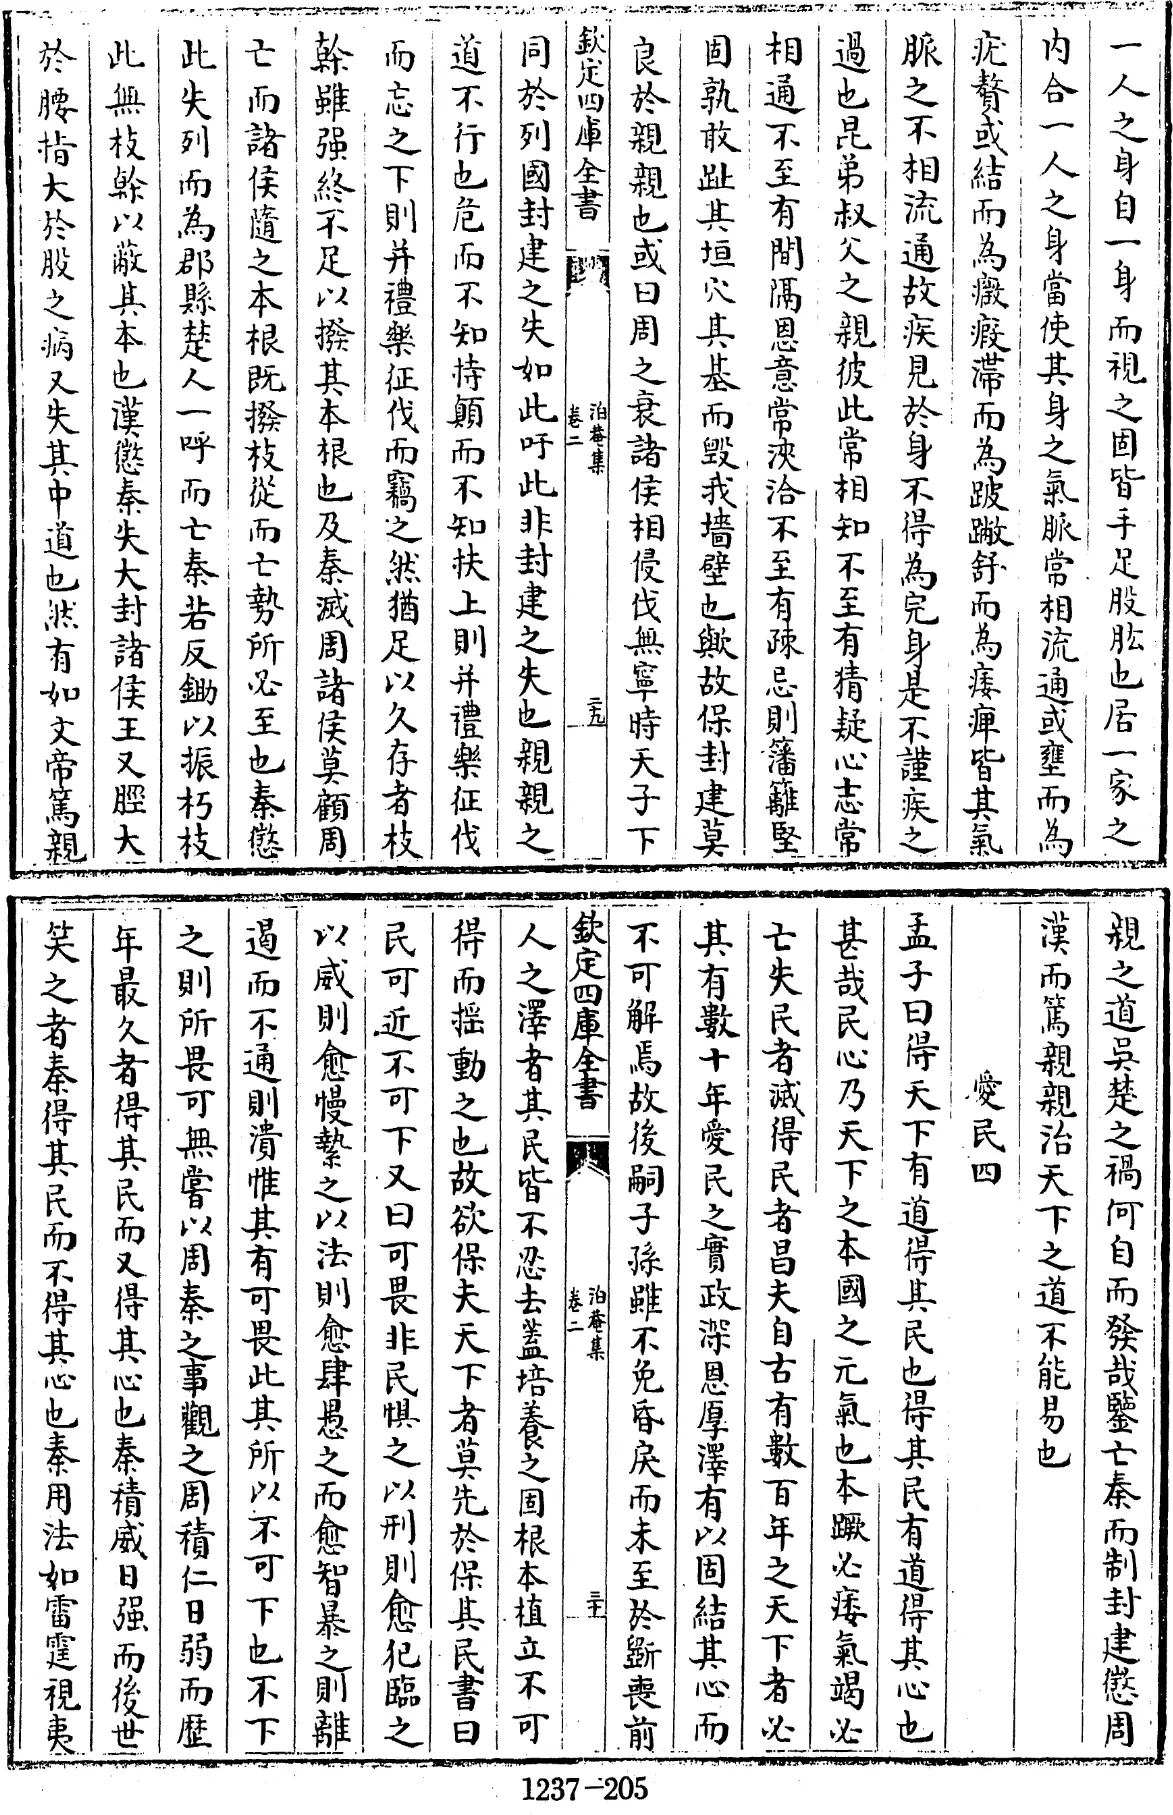 一人之身自一身而視之固皆手足股肱也居一家之
内合一人之身當使其身之氣脈常相流通或壅而為
疣贅或結而為癥瘕滯而為跛躃舒而為痿痺皆其氣
脈之不相流通故疾見於身不得為完身是不謹疾之
過也昆弟叔父之親彼此常相知不至有猜疑心志常
相通不至有間隔恩意常浹洽不至有疎忌則籓籬堅
固孰敢趾其垣穴其基而毀我墻壁也歟故保封建莫
良於親親也或曰周之衰諸侯相侵伐無寧時天子下
欽定四庫全書
泊菴集
卷二
二十九
同於列國封建之失如此吁此非封建之失也親親之
道不行也危而不知持顛而不知扶上則并禮樂征伐
而忘之下則并禮樂征伐而竊之然猶足以久存者枝
榦雖强終不足以撥其本根也及秦滅周諸侯莫顧周
亡而諸侯隨之本根既撥枝從而亡勢所必至也秦懲
此失列而為郡縣楚人一呼而亡秦若反鋤以振朽枝
此無枝榦以蔽其本也漢懲秦失大封諸侯王又脛大
於腰指大於股之病又失其中道也然有如文帝篤親
親之道吳楚之禍何自而發哉鑒亡秦而制封建懲周
漢而篤親親治天下之道不能易也
愛民四
孟子曰得天下有道得其民也得其民有道得其心也
甚哉民心乃天下之本國之元氣也本蹶必痿氣竭必
亡失民者滅得民者昌夫自古有數百年之天下者必
其有數十年愛民之實政深恩厚澤有以固結其心而
不可解焉故後嗣子孫雖不免昏戾而未至於斵喪前
欽定四庫全書
泊菴集
卷二
三十
人之澤者其民皆不忍去蓋培養之固根本植立不可
得而揺動之也故欲保夫天下者莫先於保其民書曰
民可近不可下又曰可畏非民懼之以刑則愈犯臨之
以威則愈慢縶之以法則愈肆愚之而愈智暴之則離
遏而不通則潰惟其有可畏此其所以不可下也不下
之則所畏可無嘗以周秦之事觀之周積仁日弱而歴
年最久者得其民而又得其心也秦積威日强而後世
笑之者秦得其民而不得其心也秦用法如雷霆視夷
1237-205